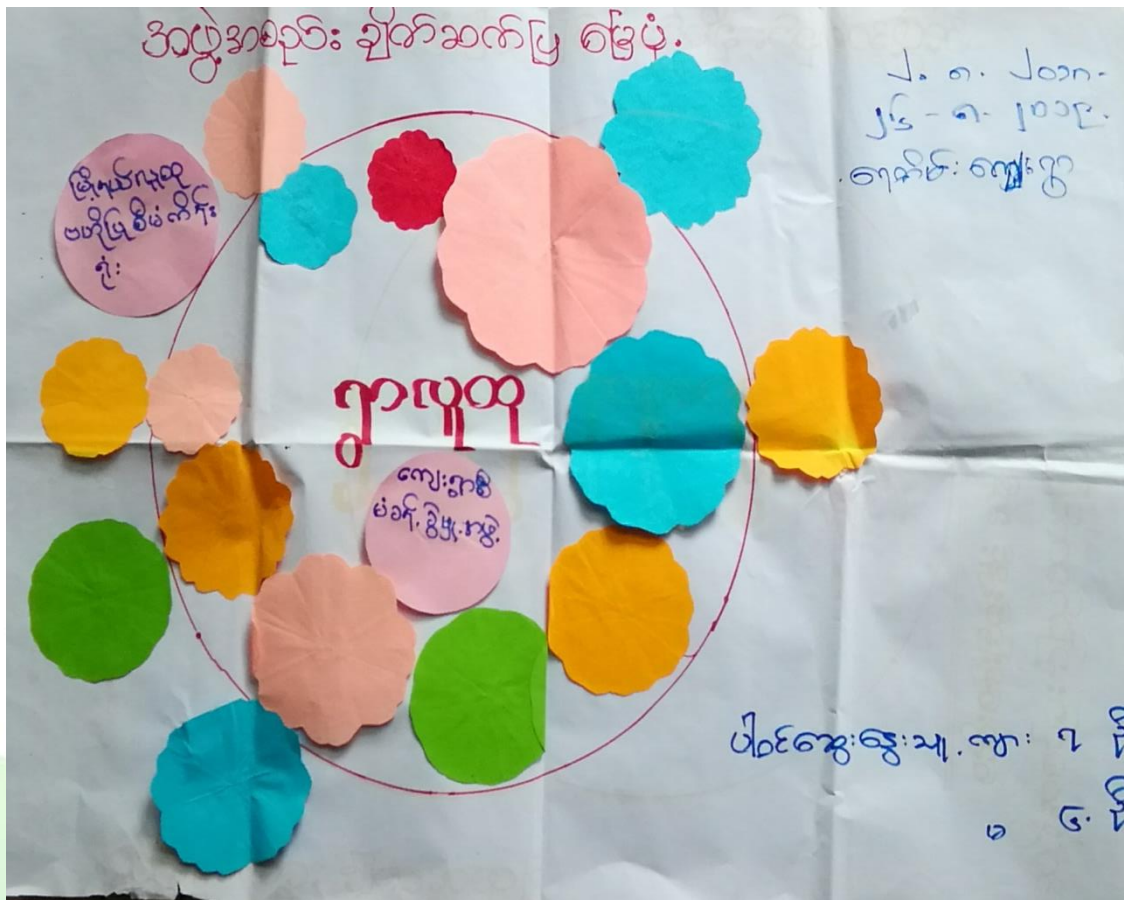 အဖွဲ့အစည်း ချိတ်ဆက်ပြ မြေပုံ.
၂. ၈. ၂၀၁၈.
၈. ၂၀၁၉.
ကျေးရွာ
မြို့နယ်လူထု
ဗဟိုပြု စီမံကိန်း
ရုံး
ရွာလူထု
ကျေးရွာစီ
မံခန့်ခွဲမှု.အဖွဲ့.
ပါဝင်ဆွေးနွေးသူ. ကျား ၇
မ ၄.